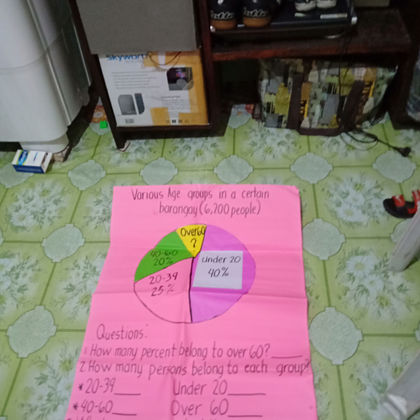 skyworth
Various Age groups in a certain
barangay (6,200 people)
Over 60
?
40-60
20%
Under 20
40%
20-39
25%
Questions:
1. How many percent belong to over 60? ____
2. How many persons belong to each group?
*20-39____ Under 20____
*40-60____ Over 60____